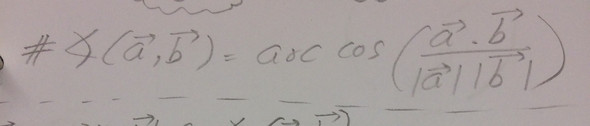 # ∢(a⃗,b⃗) = arc cos (a⃗ . b⃗ / |a⃗| |b⃗|)